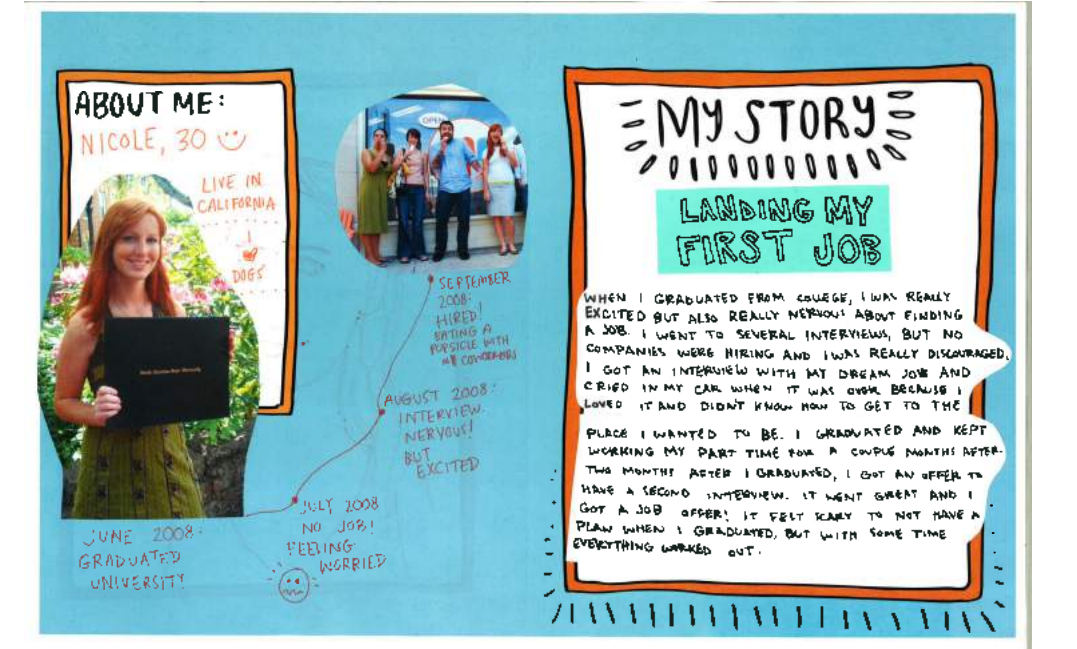 ABOUT ME:
NICOLE, 30
LIVE IN
CALIFORNIA
I
DOGS
OPEN
SEPTEMBER
2008:
HIRED!
EATING A
POPSICLE WITH
MY COWORKERS
AUGUST 2008:
INTERVIEW.
NERVOUS!
BUT
EXCITED
JULY 2008
NO JOB!
FEELING
WORRIED
JUNE 2008:
GRADUATED
UNIVERSITY
MY STORY
LANDING MY
FIRST JOB
WHEN I GRADUATED FROM COLLEGE, I WAS REALLY
EXCITED BUT ALSO REALLY NERVOUS ABOUT FINDING
A JOB. I WENT TO SEVERAL INTERVIEWS, BUT NO
COMPANIES WERE HIRING AND I WAS REALLY DISCOURAGED.
I GOT AN INTERVIEW WITH MY DREAM JOB AND
CRIED IN MY CAR WHEN IT WAS OVER BECAUSE I
LOVED IT AND DIDN'T KNOW HOW TO GET TO THE
PLACE I WANTED TO BE. I GRADUATED AND KEPT
WORKING MY PART TIME FOR A COUPLE MONTHS AFTER.
TWO MONTHS AFTER I GRADUATED, I GOT AN OFFER TO
HAVE A SECOND INTERVIEW. IT WENT GREAT AND I
GOT A JOB OFFER! IT FELT SCARY TO NOT HAVE A
PLAN WHEN I GRADUATED, BUT WITH SOME TIME
EVERYTHING WORKED OUT.